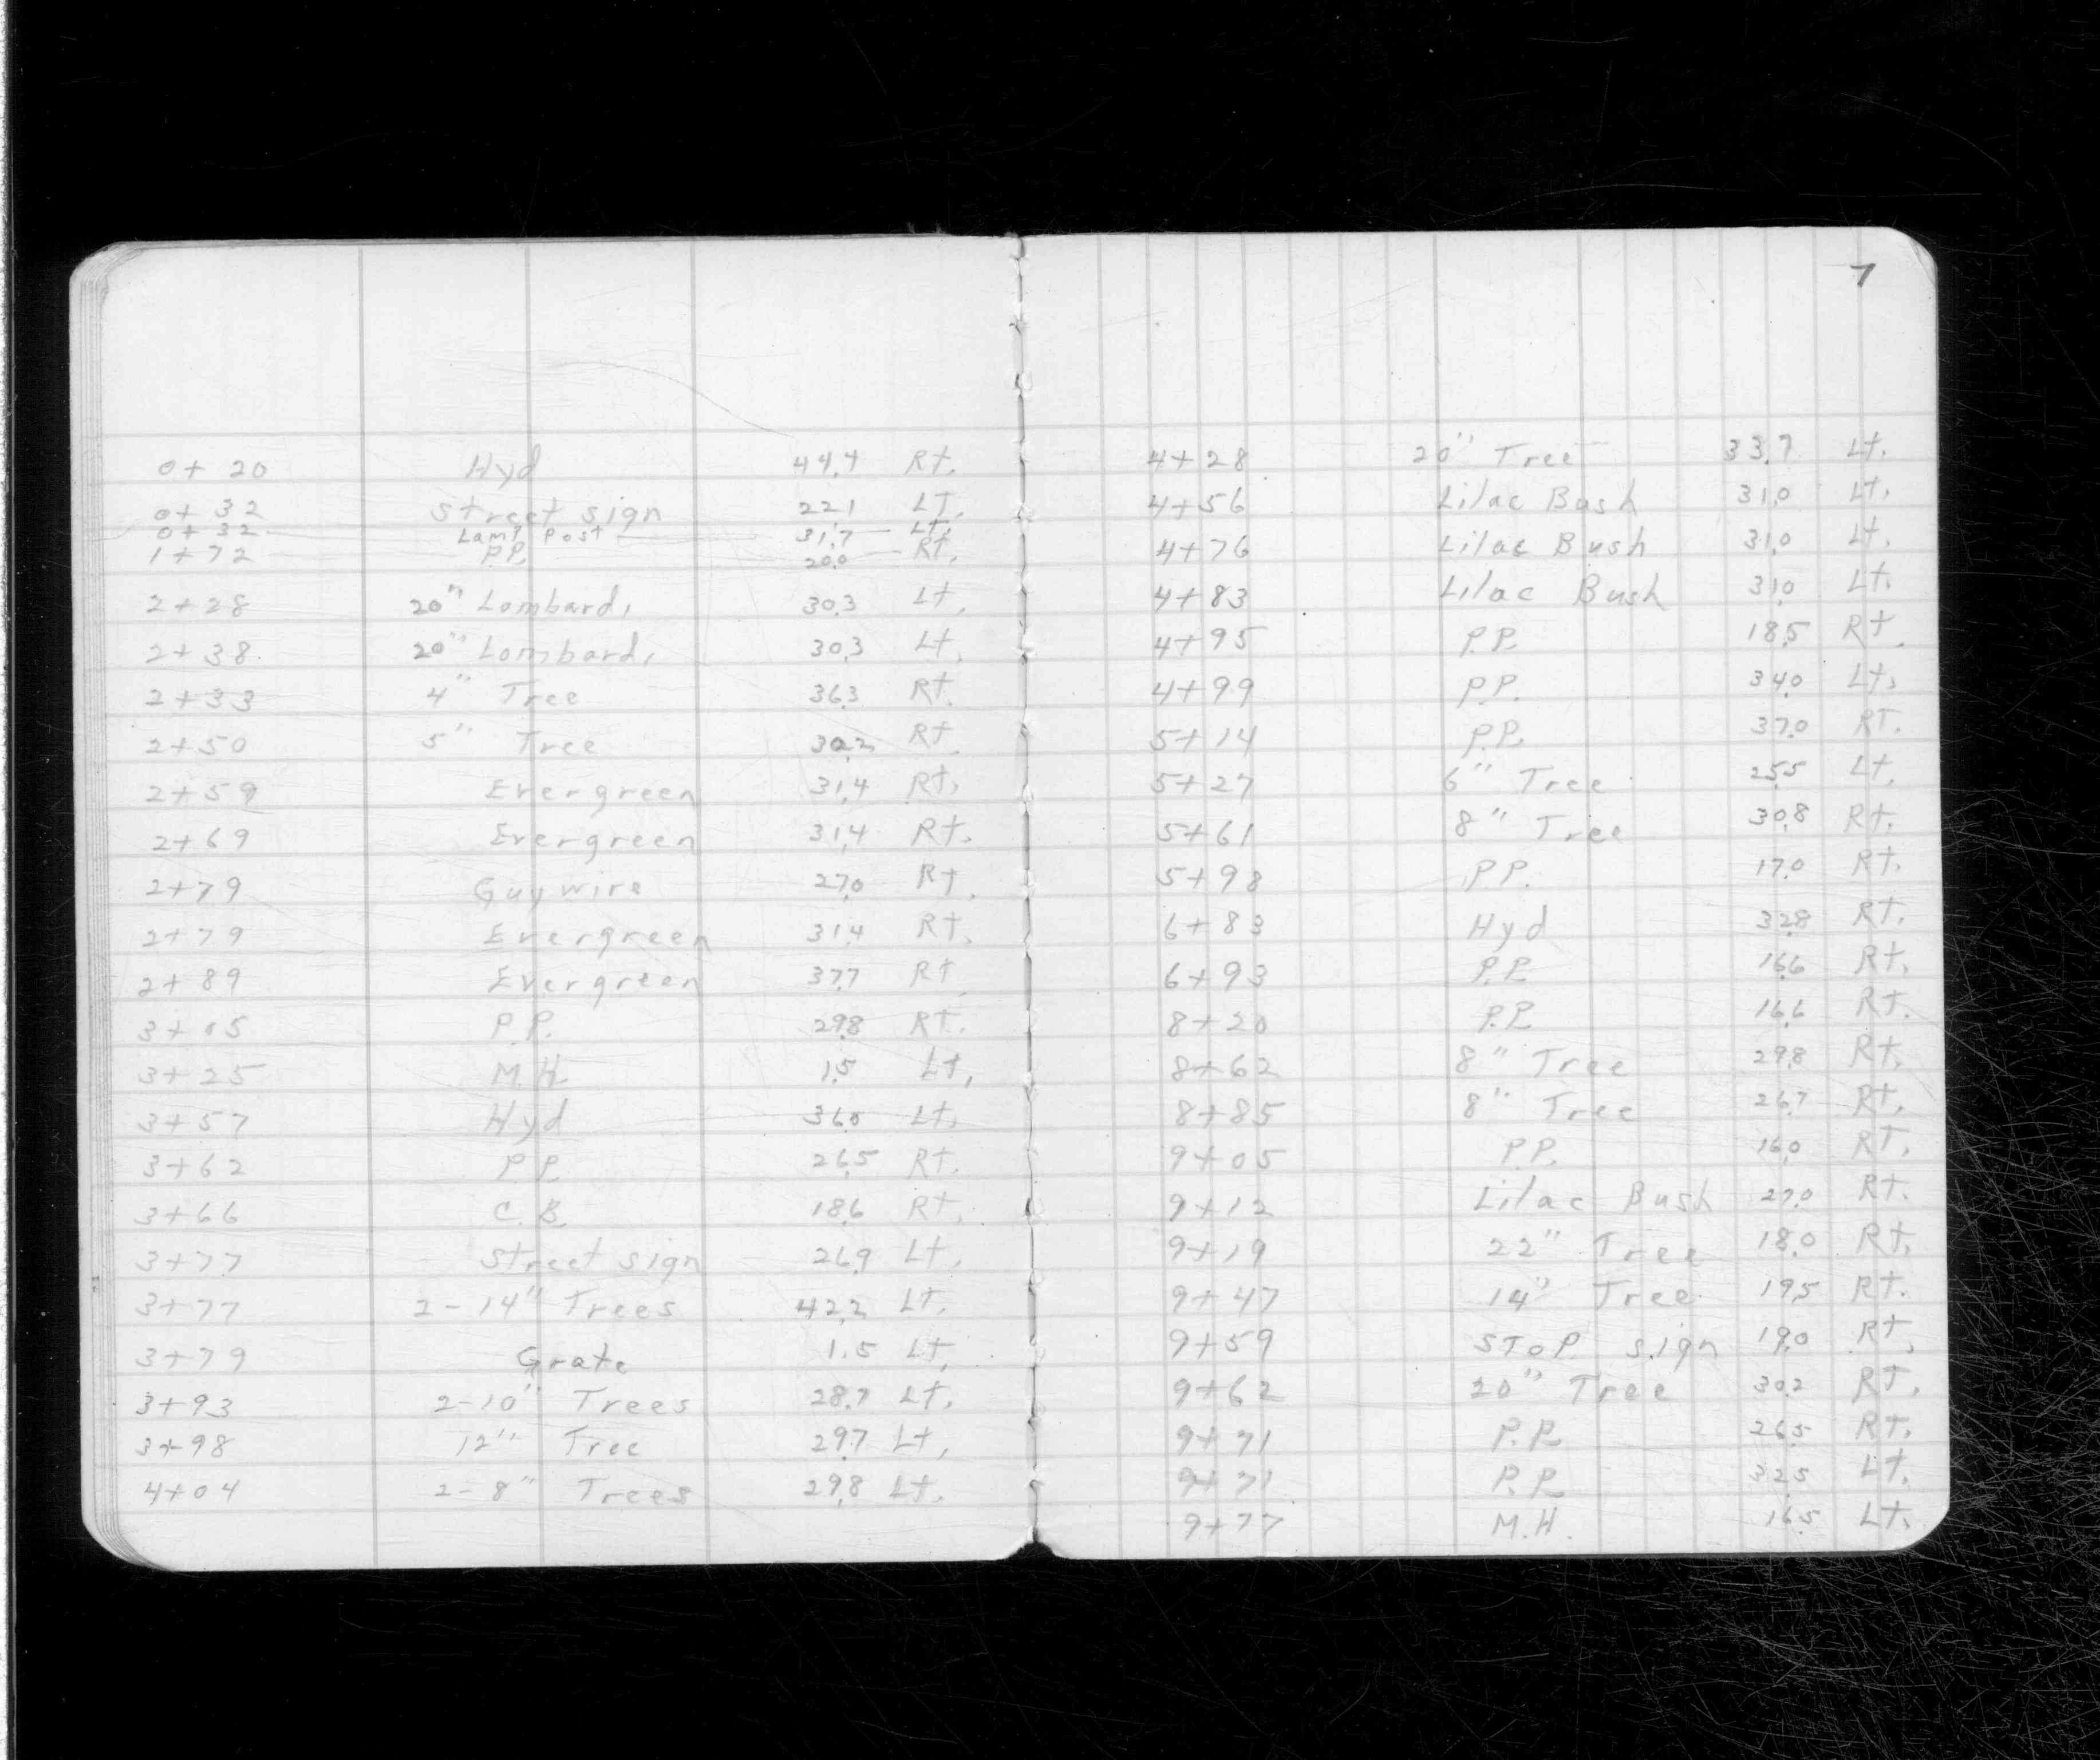 0+20 Hyd 44.4 Rt.
0+32 street sign 22.1 LT.
0+32 Lamp Post 31.7 Lt.
1+72 P.P. 20.0 Rt.
2+28 20" Lombard, 30.3 Lt.
2+38 20" Lombard, 30.3 Lt.
2+33 4" Tree 36.3 Rt.
2+50 5" Tree 30.2 Rt.
2+59 Evergreen 31.4 Rt.
2+69 Evergreen 31.4 Rt.
2+79 Guywire 27.0 Rt.
2+79 Evergreen 31.4 Rt.
2+89 Evergreen 37.7 Rt.
3+05 P.P. 29.8 Rt.
3+25 M.H. 1.5 Lt.
3+57 Hyd 36.0 Lt.
3+62 P.P. 26.5 Rt.
3+66 C.B. 18.6 Rt.
3+77 Street sign 26.9 Lt.
3+77 2-14" Trees 42.2 Lt.
3+79 Grate 1.5 Lt.
3+93 2-10" Trees 28.7 Lt.
3+98 12" Tree 29.7 Lt.
4+04 2-8" Trees 29.8 Lt.
7
4+28 20" Tree 33.7 Lt.
4+56 Lilac Bush 31.0 Lt.
4+76 Lilac Bush 31.0 Lt.
4+83 Lilac Bush 31.0 Lt.
4+95 P.P. 18.5 Rt.
4+99 P.P. 34.0 Lt.
5+14 P.P. 37.0 RT.
5+27 6" Tree 25.5 Lt.
5+61 8" Tree 30.8 Rt.
5+98 P.P. 17.0 Rt.
6+83 Hyd 32.8 Rt.
6+93 P.P. 16.6 Rt.
8+20 P.P. 16.6 Rt.
8+62 8" Tree 29.8 Rt.
8+85 8" Tree 26.7 Rt.
9+05 P.P. 16.0 RT.
9+12 Lilac Bush 27.0 Rt.
9+19 22" Tree 18.0 Rt.
9+47 14" Tree 19.5 Rt.
9+59 STOP sign 19.0 Rt.
9+62 20" Tree 30.2 RT.
9+71 P.P. 26.5 Rt.
9+71 P.P. 32.5 Lt.
9+77 M.H. 16.5 Lt.